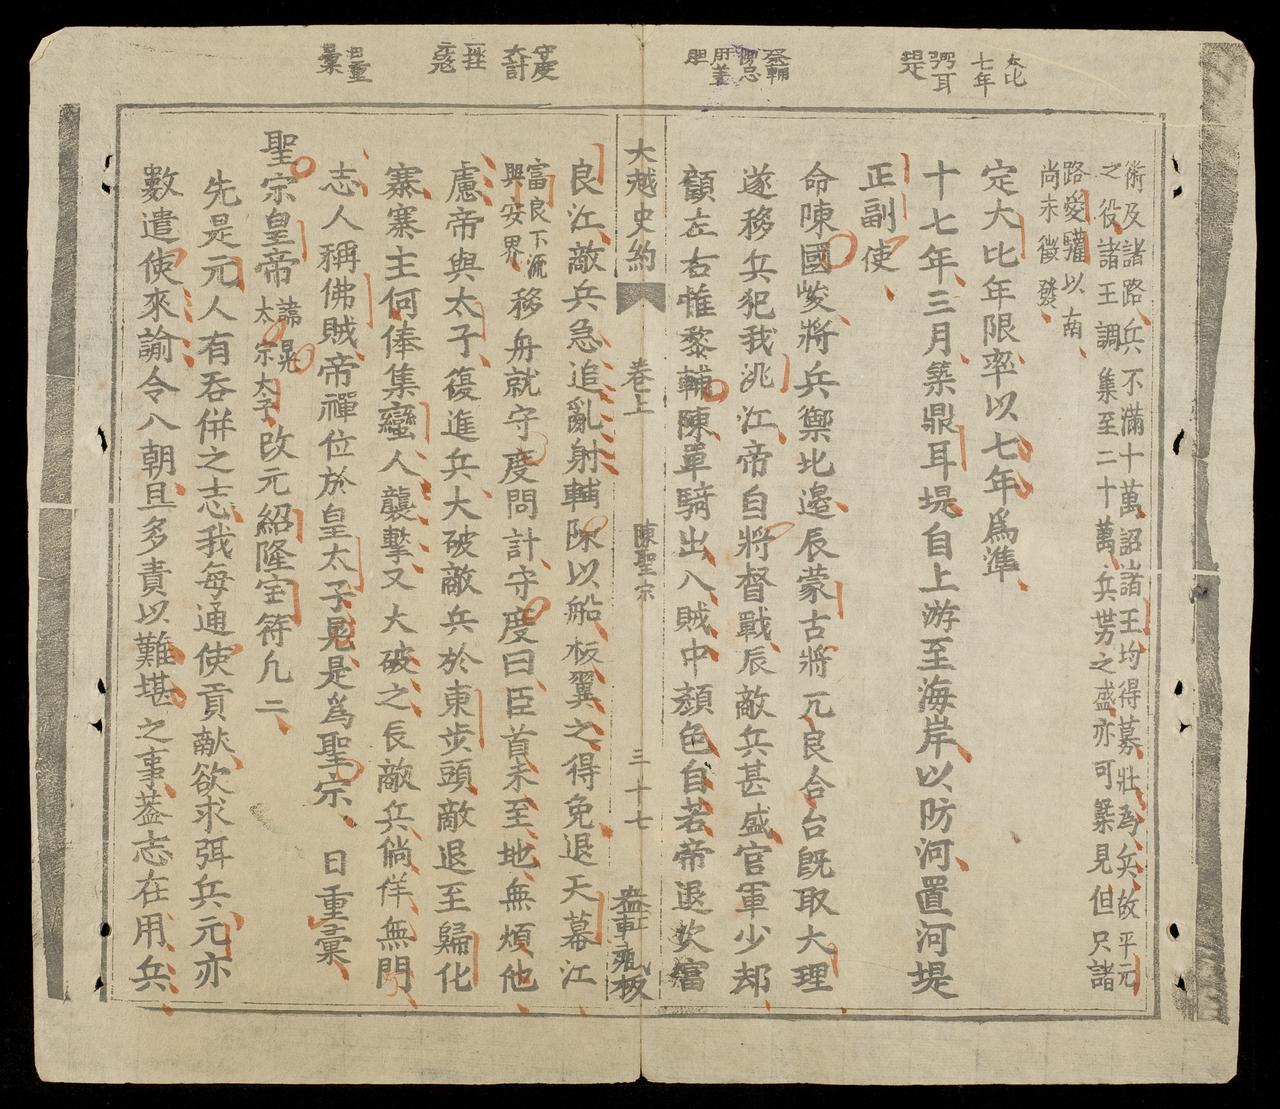 大比
七年
鼎耳
堤
黎輔
陳忠
肝蓋
胆
守度
大計
元
寇
日重
彙
術及諸路兵不滿十萬詔諸王均得募壯為兵故平元
之役諸王調集至二十萬兵势之盛亦可槩見但只諸
路愛驩以南
尚未徵發
定大比年限率以七年為準
十七年三月築鼎耳堤自上游至海岸以防河置河堤
正副使
命陳國峻將兵禦北邊辰蒙古將兀良合台既取大理
遂移兵犯我洮江帝自將督戰辰敵兵甚盛官軍少却
顧左右惟黎輔陳單騎出入賊中顏色自若帝退次富
大越史約
卷上
陳聖宗
三十七
良江敵兵急追亂射輔陳以船板翼之得免退天幕江
富良下流
興安界
移舟就守度問計守度曰臣首未至地無煩他
慮帝與太子復進兵大破敵兵於東步頭敵退至歸化
寨寨主何俸集蠻人襲擊又大破之長敵兵倘佯無鬥
志人稱佛賊帝禪位於皇太子晃是為聖宗
日重彙
聖宗皇帝
諱晃
太宗太子
改元紹隆宝符凢二
先是元人有吞併之志我每通使貢献欲求弭兵元亦
數遣使來諭令入朝且多責以難堪之事葢志在用兵